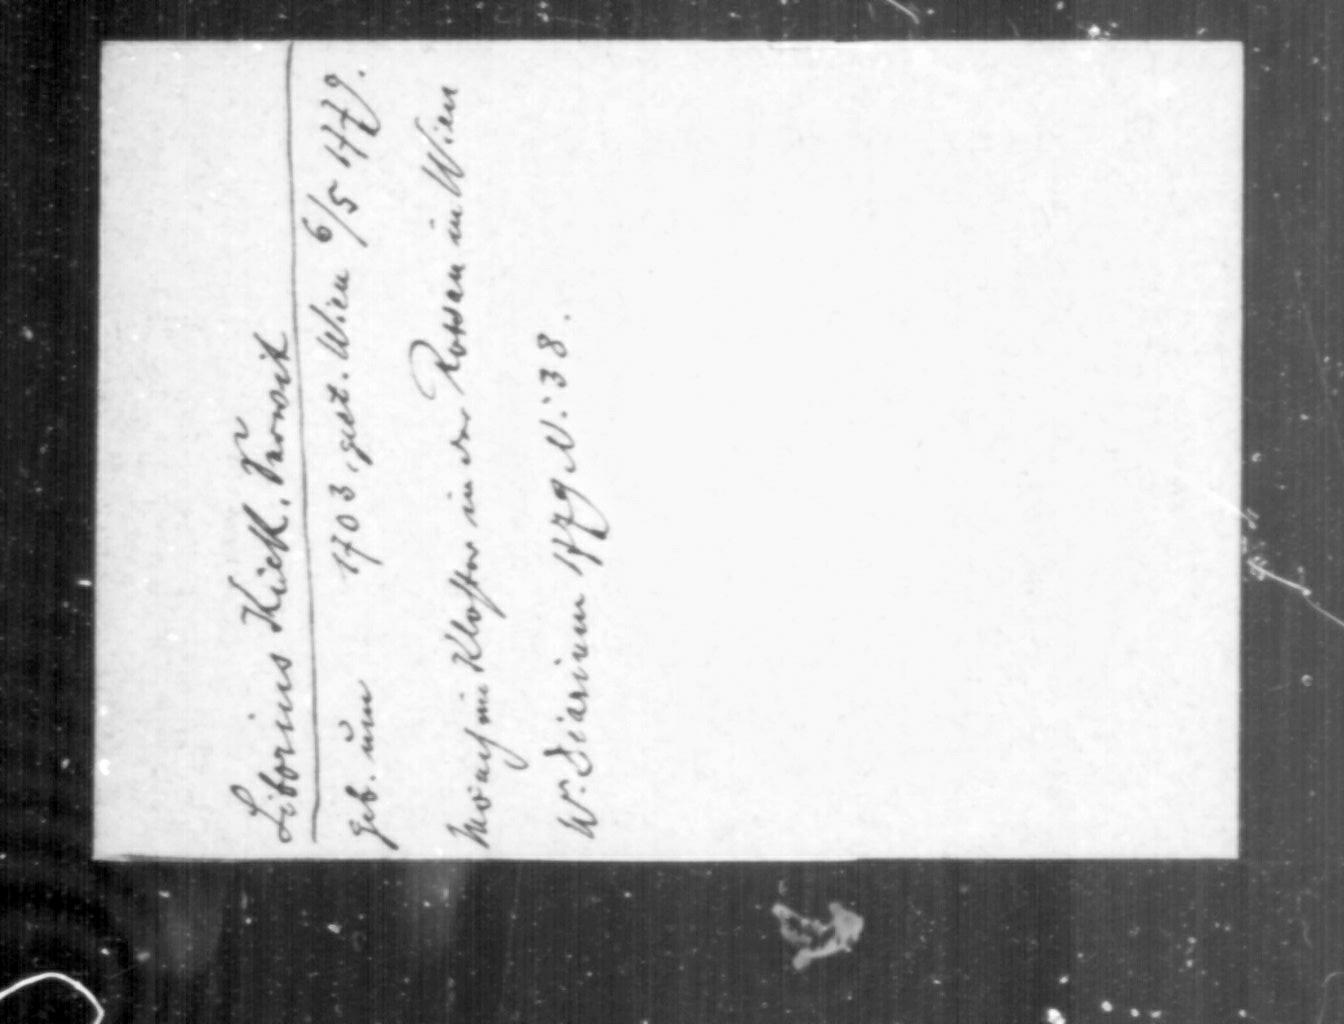 Liborius Kück. Servit
geb. um 1703, gest. Wien 6/5 1779.
Mönch im Kloster in der Rossau in Wien
W. Diarium 1779 N: 38.